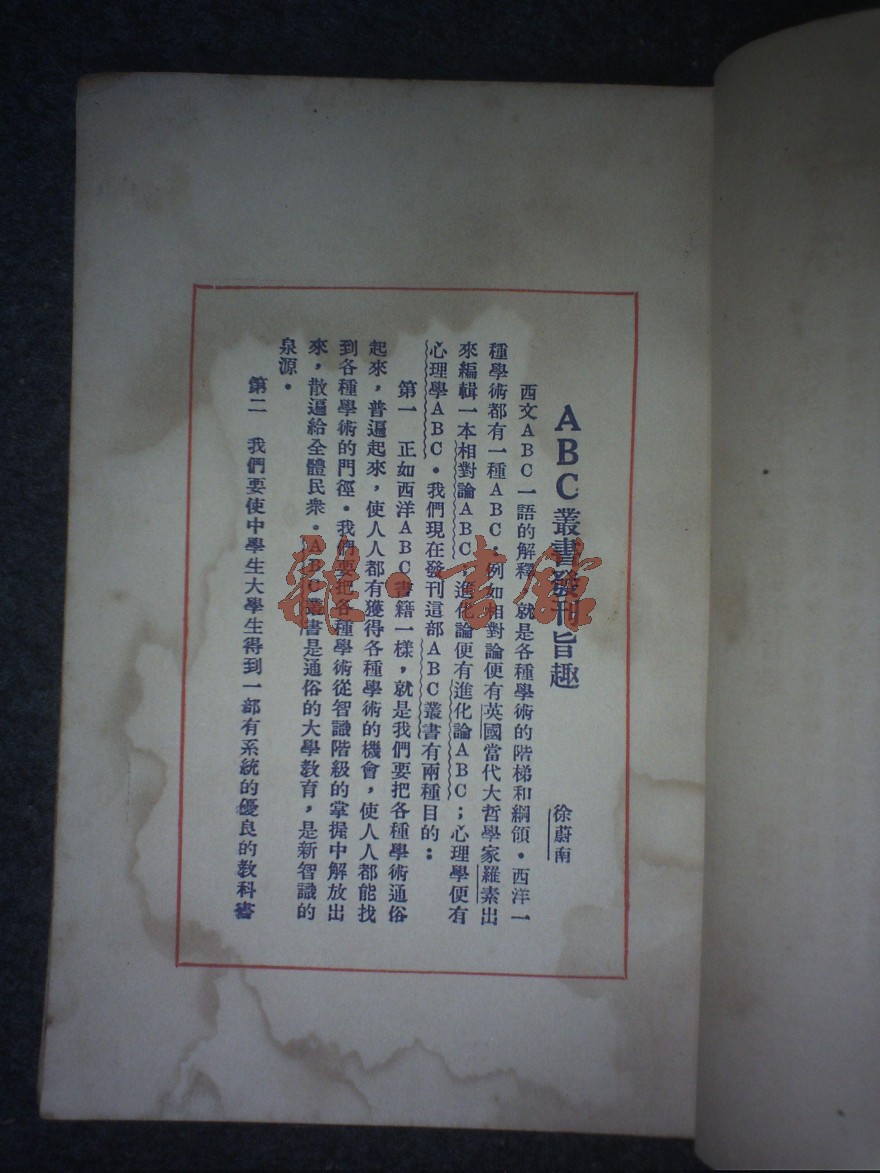 ABC叢書發刊旨趣
徐蔚南
西文ABC一語的解釋，就是各種學術的階梯和綱領．西洋一
種學術都有一種ABC；例如相對論便有英國當代大哲學家羅素出
來編輯一本相對論ABC；進化論便有進化論ABC；心理學便有
心理學ABC．我們現在發刊這部ABC叢書有兩種目的：
第一　正如西洋ABC書籍一樣，就是我們要把各種學術通俗
起來，普遍起來，使人人都有獲得各種學術的機會，使人人都能找
到各種學術的門徑．我們要把各種學術從智識階級的掌握中解放出
來，散遍給全體民衆．ABC叢書是通俗的大學教育，是新智識的
泉源．
第二　我們要使中學生大學生得到一部有系統的優良的教科書
雜·書館